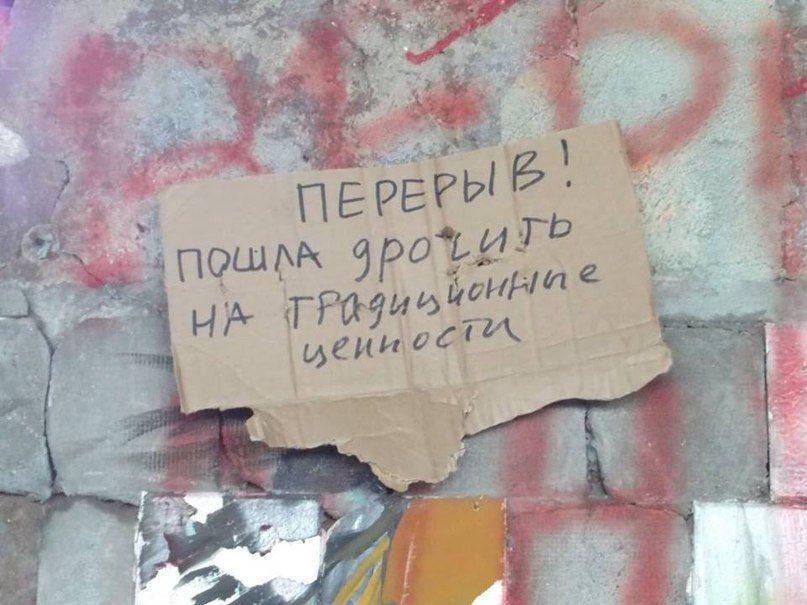 ПЕРЕРЫВ!
ПОШЛА ДРОЧИТЬ
НА ТРАДИЦИОННЫЕ
ЦЕННОСТИ